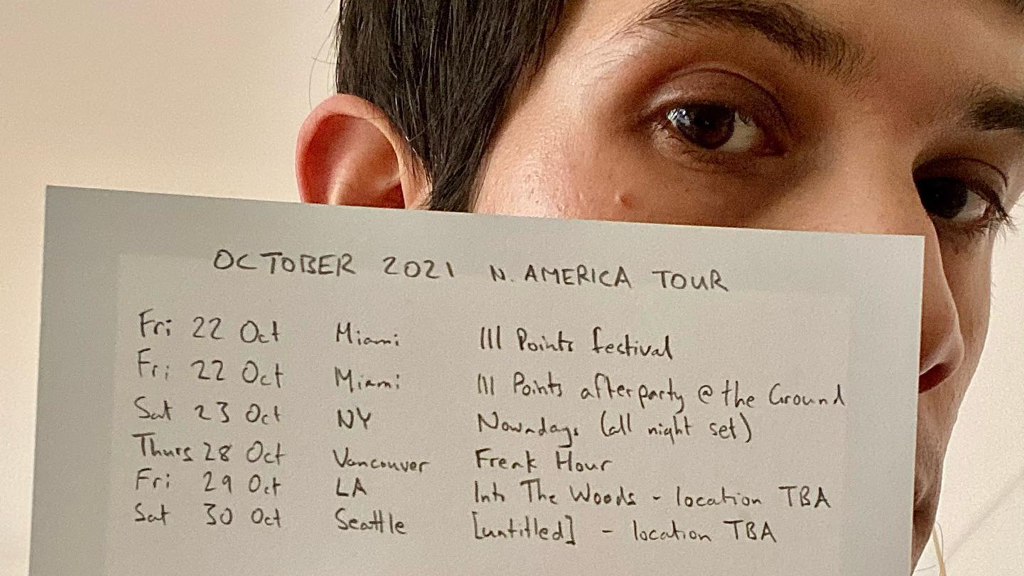 OCTOBER 2021 N. AMERICA TOUR
Fri 22 Oct Miami III Points festival
Fri 22 Oct Miami III Points afterparty @ the Ground
Sat 23 Oct NY Nowadays (all night set)
Thurs 28 Oct Vancouver Freak Hour
Fri 29 Oct LA Into The Woods - location TBA
Sat 30 Oct Seattle [untitled] - location TBA